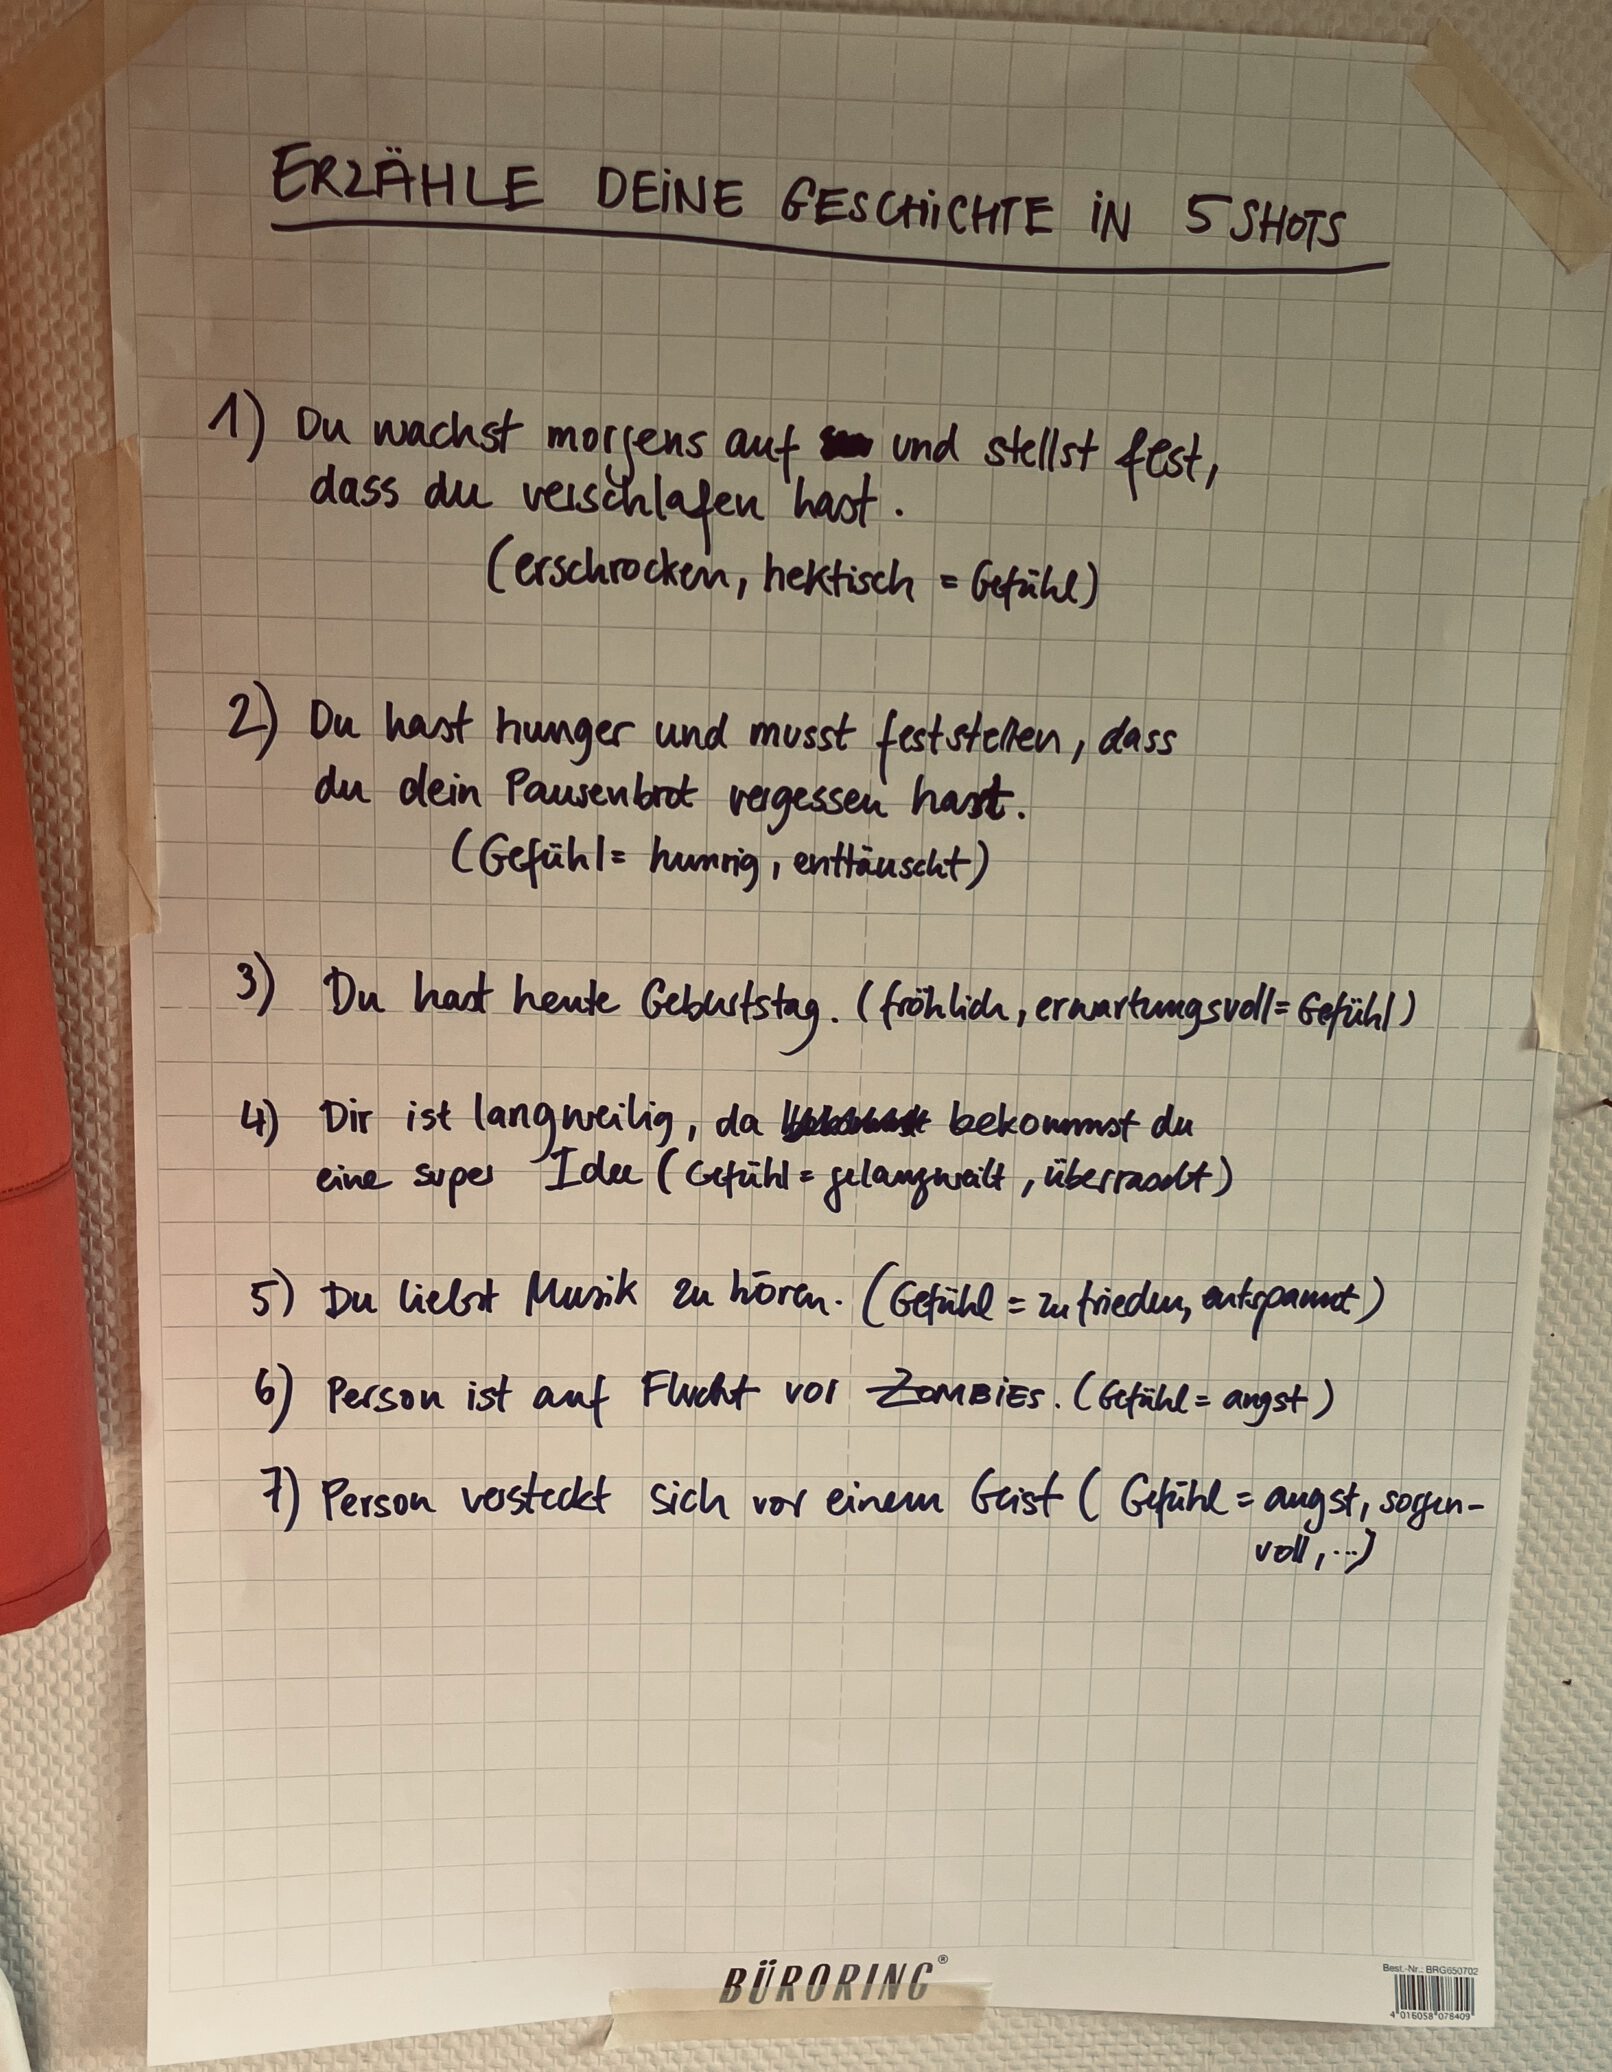 ERZÄHLE DEINE GESCHICHTE IN 5 SHOTS
1) Du wachst morgens auf und stellst fest,
dass du verschlafen hast.
(erschrocken, hektisch = Gefühl)
2) Du hast hunger und musst feststellen, dass
du dein Pausenbrot vergessen hast.
(Gefühl = hunrig, enttäuscht)
3) Du hast heute Geburtstag. (fröhlich, erwartungsvoll = Gefühl)
4) Dir ist langweilig, da bekommst du
eine super Idee (Gefühl = gelangweilt, überrascht)
5) Du liebst Musik zu hören. (Gefühl = zufrieden, entspannt)
6) Person ist auf Flucht vor ZOMBIES. (Gefühl = angst)
7) Person versteckt sich vor einem Geist (Gefühl = angst, sorgen-
voll, ...)
BÜRORING®
Best.-Nr.: BRG650702
4 016058 078409